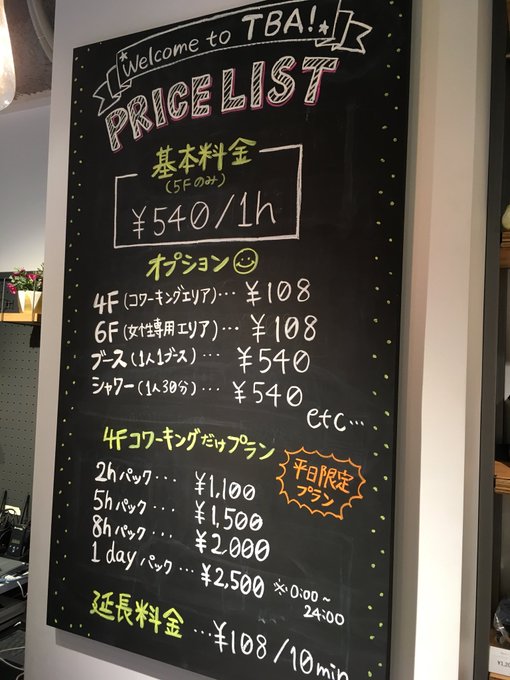 Welcome to TBA!
PRICE LIST
基本料金
(5Fのみ)
¥540/1h
オプション
4F(コワーキングエリア)… ¥108
6F(女性専用エリア)… ¥108
ブース(1人1ブース)… ¥540
シャワー(1人30分)… ¥540
etc…
4Fコワーキングだけプラン
平日限定
プラン
2hパック… ¥1,100
5hパック… ¥1,500
8hパック… ¥2,000
1dayパック… ¥2,500 ※0:00~
24:00
延長料金 …¥108/10min